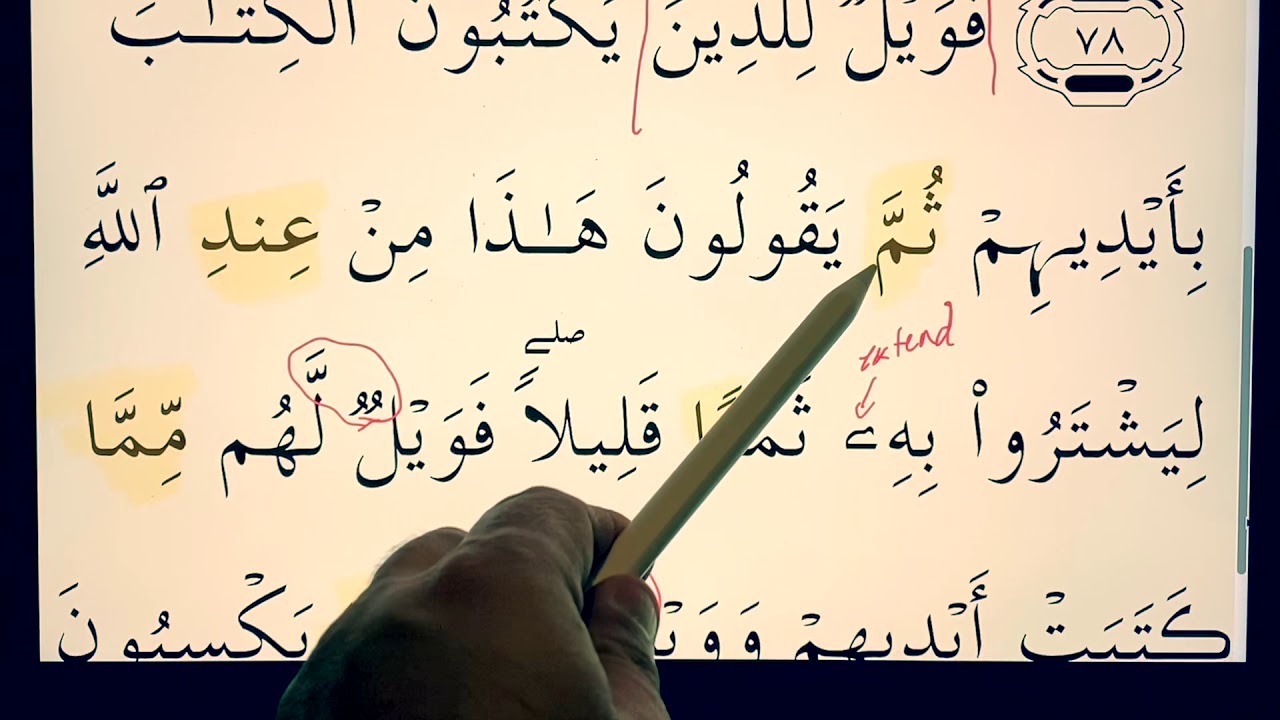 ٧٨ فَوَيْلٌ لِّلَّذِينَ يَكْتُبُونَ ٱلْكِتَـٰبَ
بِأَيْدِيهِمْ ثُمَّ يَقُولُونَ هَـٰذَا مِنْ عِندِ ٱللَّهِ
extend
لِيَشْتَرُوا۟ بِهِۦ ثَمَنًا قَلِيلاً ۖ فَوَيْلٌ لَّهُم مِّمَّا
كَتَبَتْ أَيْدِيهِمْ يَكْسِبُونَ